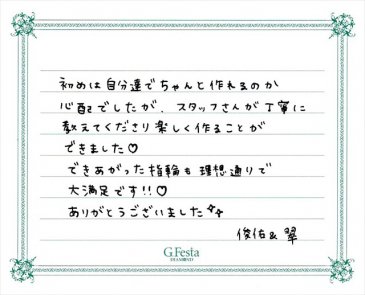 初めは自分達でちゃんと作れるのか
心配でしたが、スタッフさんが丁寧に
教えてくださり楽しく作ることが
できました♡
できあがった指輪も理想通りで
大満足です!!♡
ありがとうございました✨
俊佑&翠
G.Festa
DIAMOND